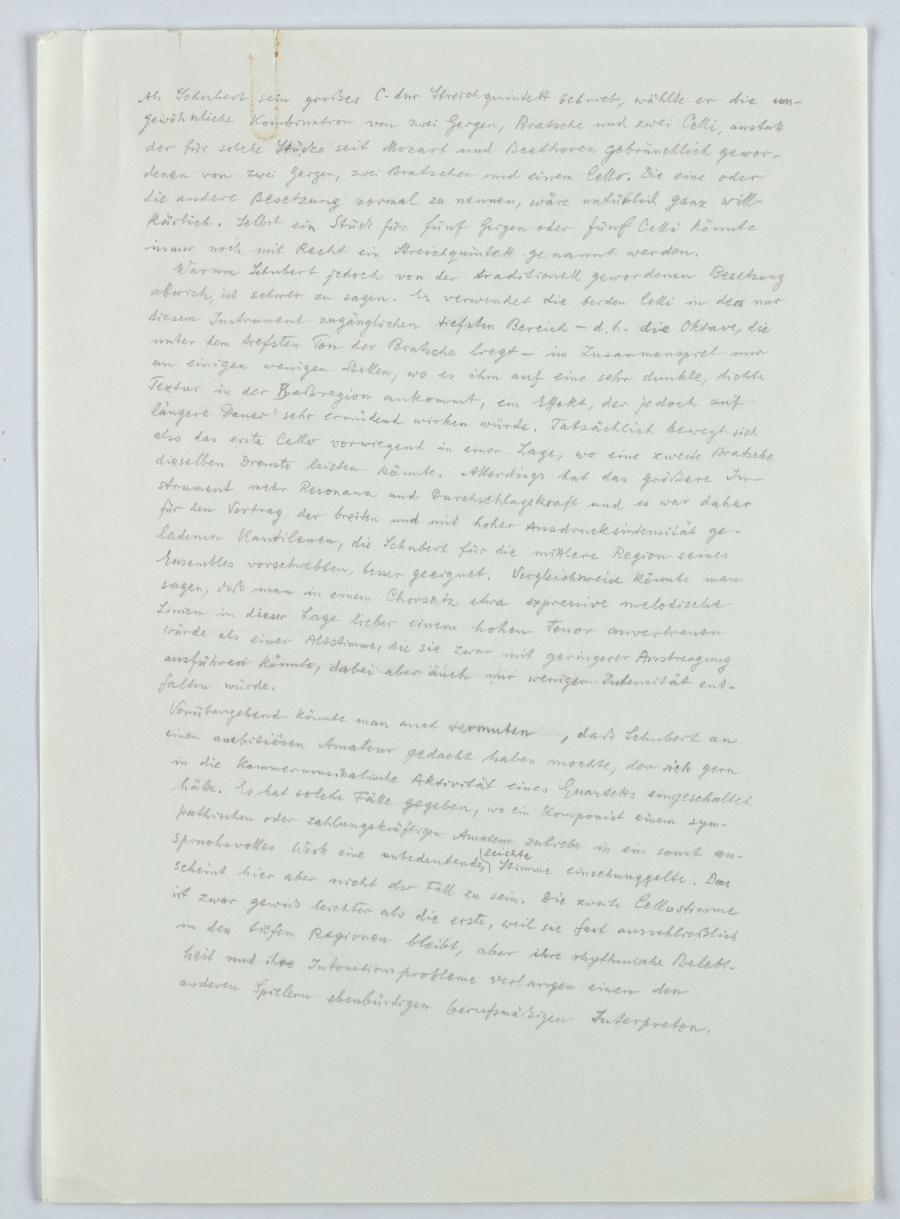 Als Schubert sein großes C-dur Streichquintett schrieb, wählte er die un-
gewöhnliche Kombination von zwei Geigen, Bratsche und zwei Celli, anstatt
der für solche Stücke seit Mozart und Beethoven gebräuchlich gewor-
denen von zwei Geigen, zwei Bratschen und einem Cello. Die eine oder
die andere Besetzung normal zu nennen, wäre natürlich ganz will-
kürlich. Selbst ein Stück für fünf Geigen oder fünf Celli könnte
immer noch mit Recht ein Streichquintett genannt werden.
Warum Schubert jedoch von der traditionell gewordenen Besetzung
abwich, ist schwer zu sagen. Er verwendet die beiden Celli in dem nur
diesem Instrument zugänglichen tiefsten Bereich – d.h. die Oktave, die
unter dem tiefsten Ton der Bratsche liegt – im Zusammenspiel nur
an einigen wenigen Stellen, wo es ihm auf eine sehr dunkle, dichte
Textur in der Baßregion ankommt, ein Effekt, der jedoch auf
längere Dauer sehr ermüdend wirken würde. Tatsächlich bewegt sich
also das erste Cello vorwiegend in einer Lage, wo eine zweite Bratsche
dieselben Dienste leisten könnte. Allerdings hat das größere In-
strument mehr Resonanz und Durchschlagskraft und es war daher
für den Vortrag der breiten und mit hoher Ausdrucksintensität ge-
ladenen Kantilenen, die Schubert für die mittlere Region seines
Ensembles vorschwebten, besser geeignet. Vergleichsweise könnte man
sagen, daß man in einem Chorsatz etwa expressive melodische
Linien in dieser Lage lieber einem hohen Tenor anvertrauen
würde als einer Altstimme, die sie zwar mit geringerer Anstrengung
ausführen könnte, dabei aber auch nur weniger Intensität ent-
falten würde.
Vorübergehend könnte man auch vermuten, daß Schubert an
einen ambitiösen Amateur gedacht haben mochte, der sich gern
in die kammermusikalische Aktivität eines Quartetts eingeschaltet
hätte. Es hat solche Fälle gegeben, wo ein Komponist einem sym-
pathischen oder zahlungskräftigen Amateur zuliebe in ein sonst an-
spruchsvolles Werk eine unbedeutende, (leichte) Stimme einschmuggelte. Das
scheint hier aber nicht der Fall zu sein. Die zweite Cellostimme
ist zwar gewiß leichter als die erste, weil sie fast ausschließlich
in den tiefen Regionen bleibt, aber ihre rhythmische Belebt-
heit und ihre Intonationsprobleme verlangen einen den
anderen Spielern ebenbürtigen berufsmäßigen Interpreten.